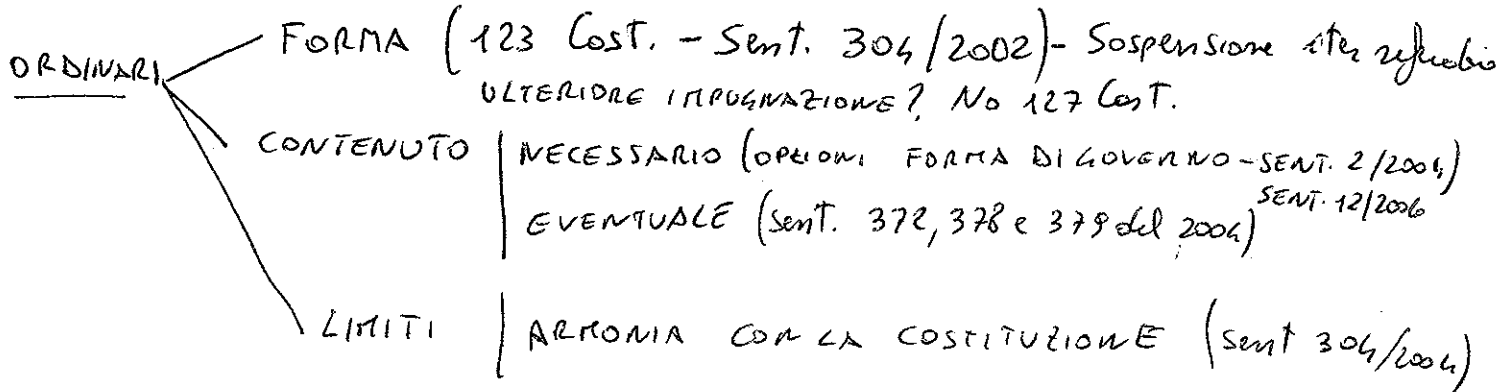 FORMA (123 Cost. - Sent. 304/2002) - Sospensione iter
ORDINARI
ULTERIORE IMPUGNAZIONE? No 127 Cost.
CONTENUTO | NECESSARIO (OPZIONI FORMA DI GOVERNO - SENT. 2/2004)
SENT. 12/2006
EVENTUALE (Sent. 372, 378 e 379 del 2004)
LIMITI | ARMONIA CON LA COSTITUZIONE (Sent 304/2004)